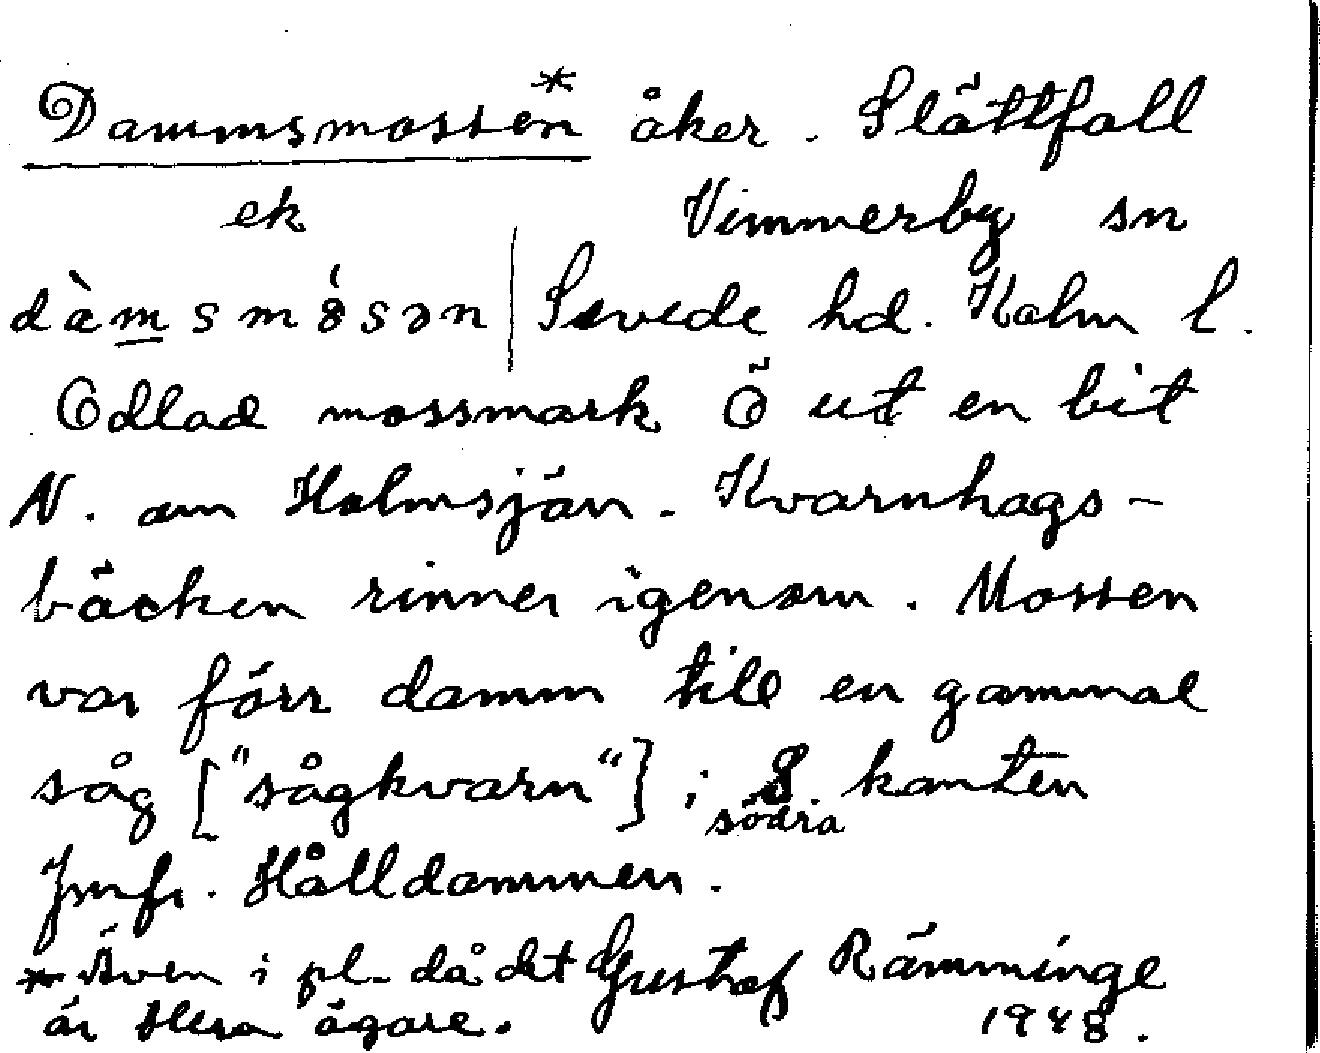 Dammsmossen* åker. Slättfall
ek Vimmerby sn
dàmsmósən | Sevede hd. Kalm l.
Odlad mossmark Ö ut en bit
N. om Holmsjön. Kvarnhags-
bäcken rinner igenom. Mossen
var förr damm till en gammal
såg ["sågkvarn"] i S. kanten
södra
Jmfr. Hålldammen.
* Även i pl. då det Gustaf Rämminge
är flera ägare. 1948.